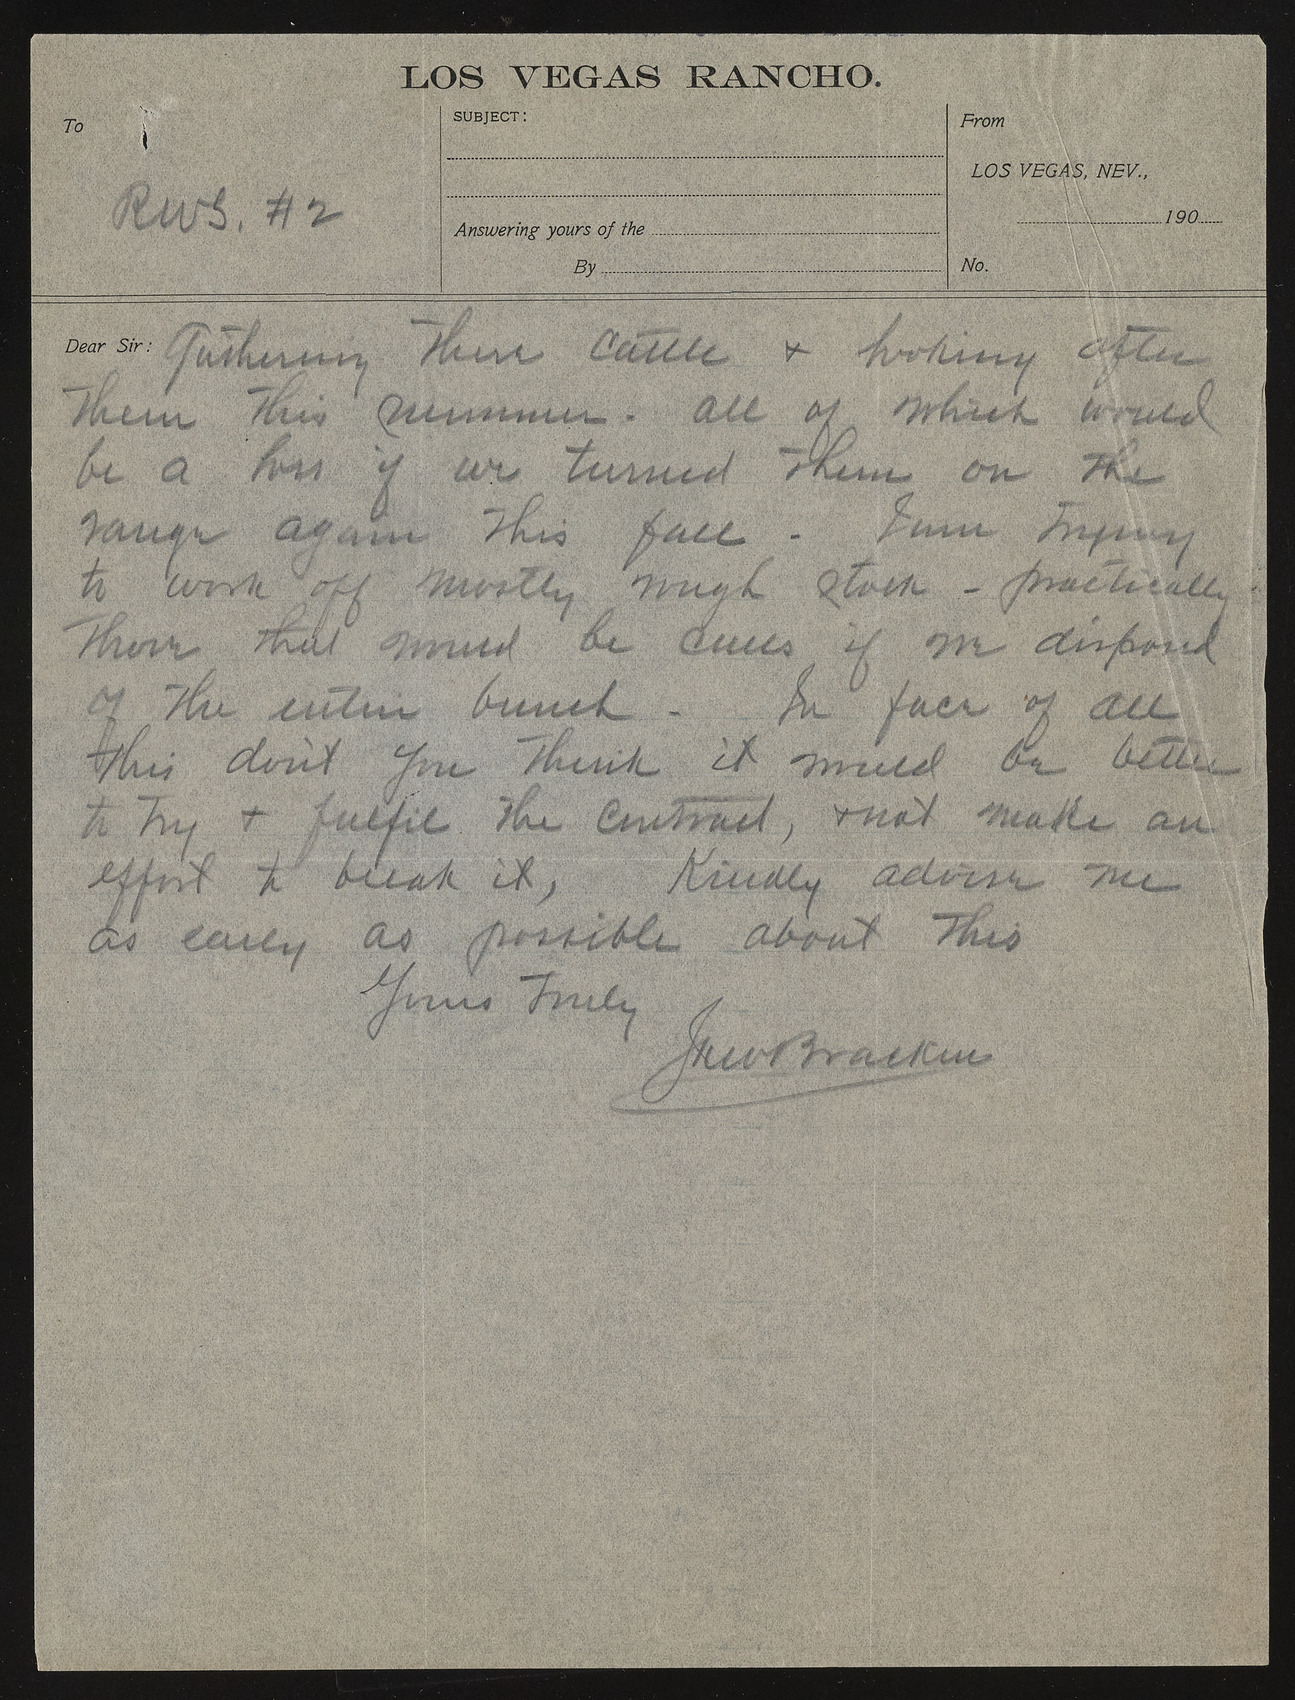 LOS VEGAS RANCHO.
To
SUBJECT:
From
LOS VEGAS, NEV.,
RWS. #2
190
Answering yours of the
By
No.
Dear Sir: Gathering these cattle & looking after
them this summer. all of which would
be a loss if we turned them on the
range again this fall - I am trying
to work off mostly rough stock - practically
those that would be culls if we disposed
of the entire bunch - In face of all
this don't you think it would be better
to try & fulfil the contract, & not make an
effort to break it, Kindly advise me
as early as possible about this
Yours Truly
Bracken